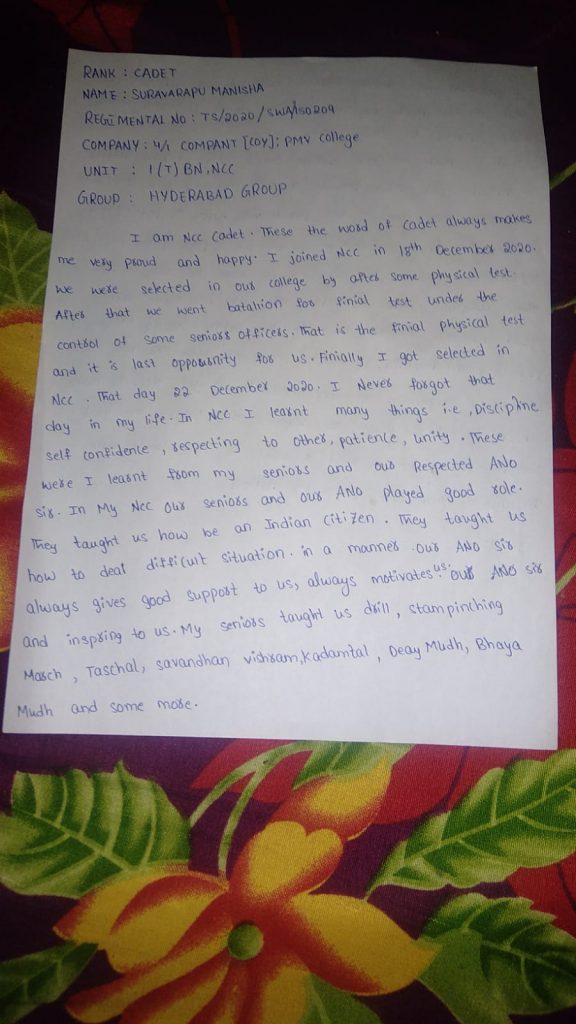 RANK : CADET
NAME : SURAVARAPU MANISHA
REGIMENTAL NO : TS/2020/SWA/150209
COMPANY : 4/1 COMPANT [COY]; PMV College
UNIT : 1(T) BN, NCC
GROUP : HYDERABAD GROUP
I am Ncc Cadet. These the word of Cadet always makes
me very proud and happy. I joined Ncc in 18th December 2020.
we were selected in our college by after some physical test.
After that we went batahion for finial test under the
control of some seniors officers. That is the finial physical test
and it is last opportunity for us. Finially I got selected in
Ncc. That day 22 December 2020. I Never forgot that
day in my life. In Ncc I learnt many things i.e, Discipline
self confidence, respecting to other, patience, unity. These
were I learnt from my seniors and our Respected ANO
sir. In My Ncc our seniors and our ANO played good role.
They taught us how be an Indian Citizen. They taught us
how to deal difficult situation. in a manner. our ANO sir
always gives good support to us, always motivates us. our ANO sir
and inspring to us. My seniors taught us drill, stampinching
March, Taschal, savandhan vishram, Kadamtal, Deay Mudh, Bhaya
Mudh and some more.